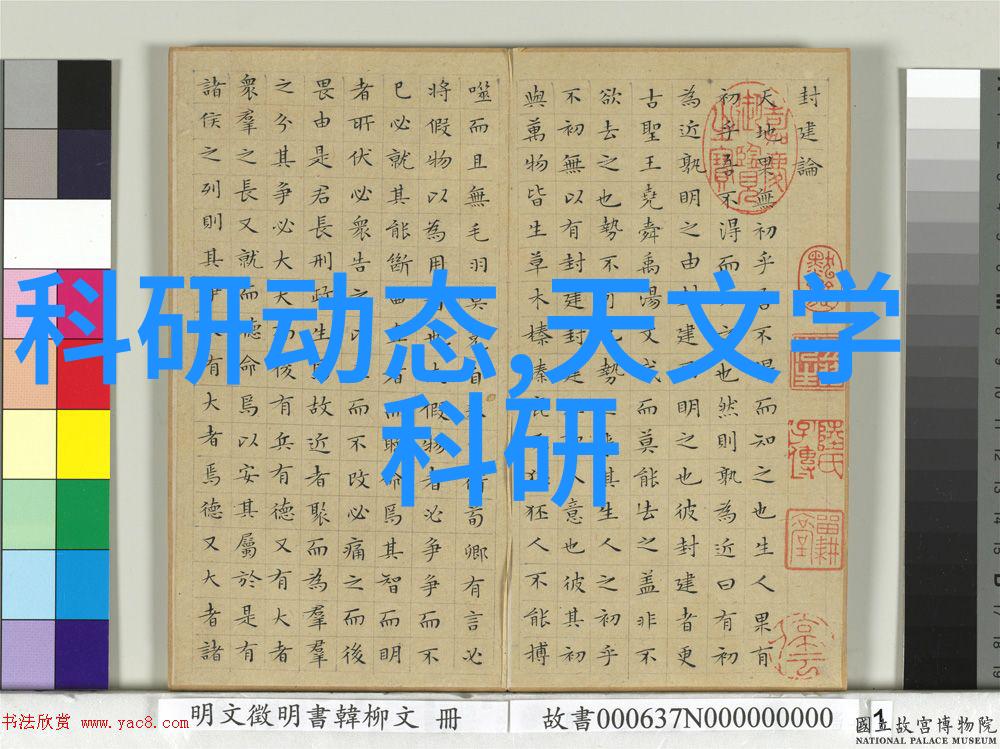 封建論
天地果無初乎吾不得而知之也生人果有
初乎吾不得而知之也然則孰為近曰有初
為近孰明之由封建而明之也彼封建者更
古聖王堯舜禹湯文武而莫能去之蓋非不
欲去之也勢不可也勢之來其生人之初乎
不初無以有封建封建非聖人意也彼其初
與萬物皆生草木榛榛鹿豕狉狉人不能搏
噬而且無毛羽莫克自奉自衛荀卿有言必
將假物以為用者也夫假物者必爭爭而不
已必就其能斷曲直者而聽命焉其智而明
者所伏必衆告之以直而不改必痛之而後
畏由是君長刑政生焉故近者聚而為羣
之分其爭必大大而後有兵有德又有大者
衆羣之長又就而聽命焉以安其屬於是有
諸侯之列則其爭又有大者焉德又大者諸
科研动态,天文学
科研
书法欣赏 www.yac8.com
明文徵明書韓柳文 冊
故書000637N000000000
1
國立故宮博物院
NATIONAL PALACE MUSEUM